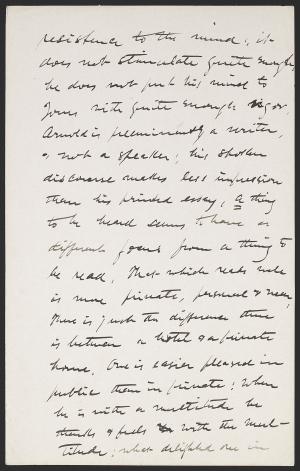 resistence to the mind; it
does not stimulate quite enough,
he does not put his mind to
yours with quite enough vigor.
Arnold is preeminently a writer,
& not a speaker; his spoken
discourse makes less impression
than his printed essay. A thing
to be heard seems to have a
different focus from a thing to
be read. That which reads well
is more private, personal & near,
There is just the difference there
is between a hotel & a private
home. One is easier pleased in
public than in private; when
he is with a multitude he
thinks & feels with the mul-
titude; what delighted one in